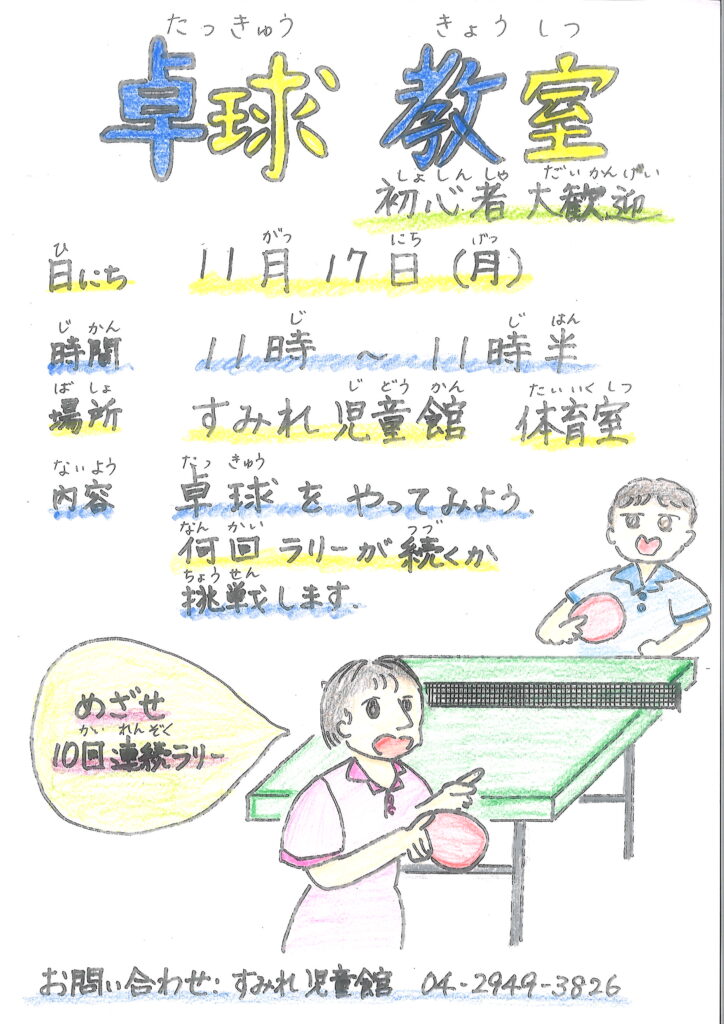 たっきゅう きょうしつ
卓球 教室
しょしんしゃ だいかんげい
初心者 大歓迎
ひ がつ にち げつ
日にち 11月17日(月)
じかん じ じ はん
時間 11時～11時半
ばしょ じどうかん たいいくしつ
場所 すみれ児童館 体育室
ないよう たっきゅう
内容 卓球をやってみよう.
なんかい つづ
何回ラリーが続くか
ちょうせん
挑戦します.
めざせ
かい れんぞく
10回連続ラリー
お問い合わせ:すみれ児童館 04-2949-3826